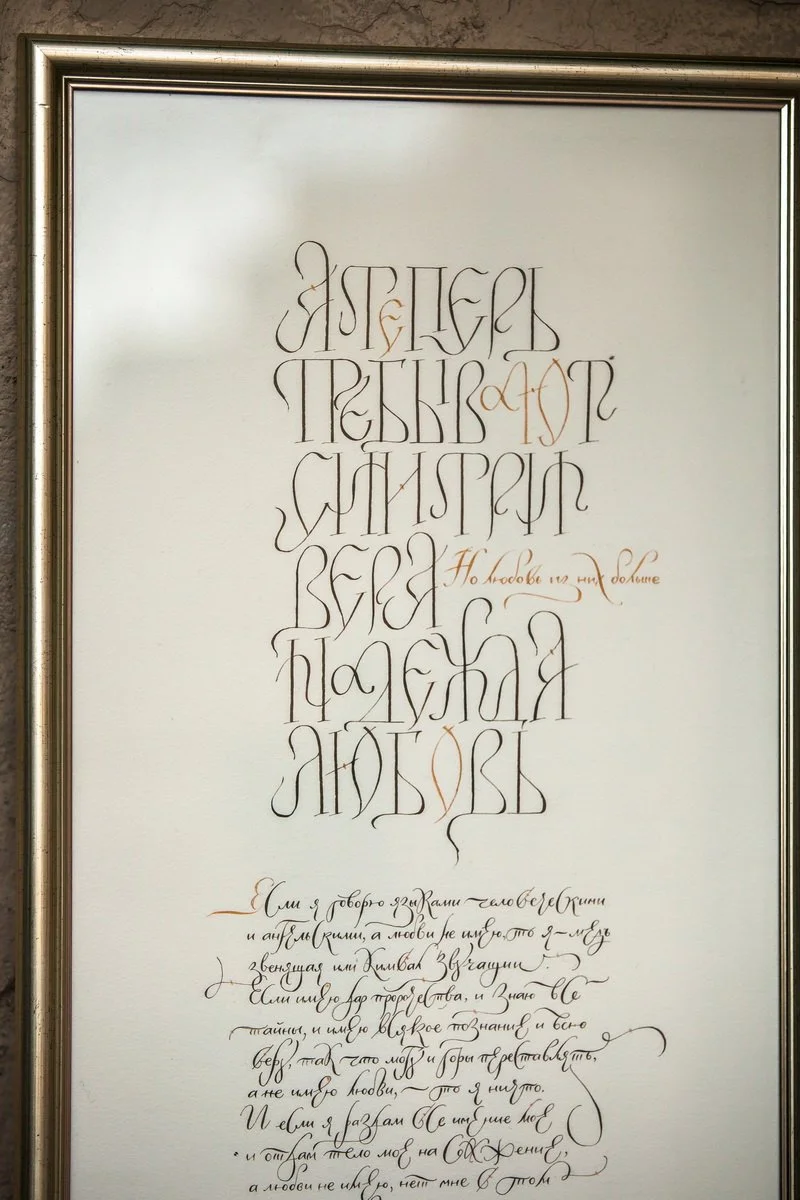 А ТЕПЕРЬ
ПРЕБЫВАЮТ
СИИ ТРИ
ВЕРА
Но любовь из них больше
НАДЕЖДА
ЛЮБОВЬ
Если я говорю языками человеческими
и ангельскими, а любви не имею, то я – медь
звенящая или кимвал звучащий.
Если имею дар пророчества, и знаю все
тайны, и имею всякое познание и всю
веру, так что могу и горы переставлять,
а не имею любви, – то я ничто.
И если я раздам все имение мое
и отдам тело мое на сожжение,
а любви не имею, нет мне в том